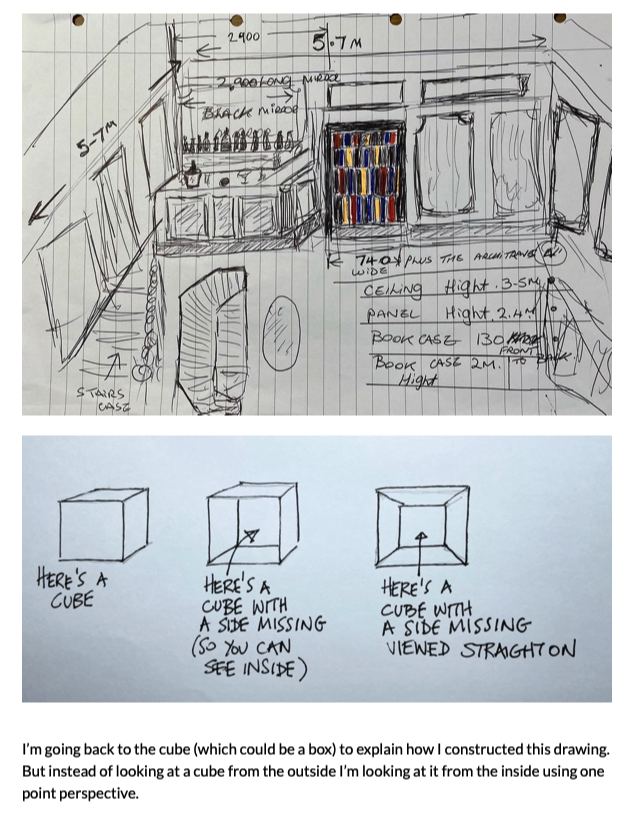 2,900
5.7 M
2,900 LONG MIRROR
BLACK MIRROR
5-7M
740 PLUS THE ARCHITRAVE
WIDE
CEILING Hight. 3-5M
PANEL Hight. 2.4M
BOOK CASE 130 FRONT TO BACK.
BOOK CASE 2M.
Hight
STAIRS
CASE
HERE'S A
CUBE
HERE'S A
CUBE WITH
A SIDE MISSING
(SO YOU CAN
SEE INSIDE)
HERE'S A
CUBE WITH
A SIDE MISSING
VIEWED STRAIGHT ON
I'm going back to the cube (which could be a box) to explain how I constructed this drawing.
But instead of looking at a cube from the outside I'm looking at it from the inside using one
point perspective.